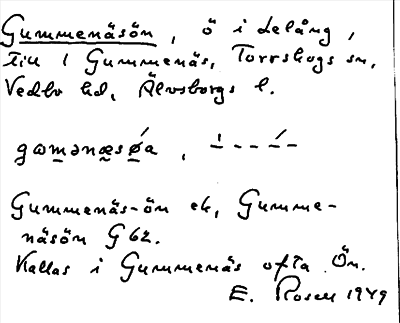 Gummenäsön, ö i Lelång,
Till 1 Gummenäs, Torrskogs sn,
Vedbo hd, Älvsborgs l.
Gummenäs-ön ek, Gumme-
näsön G 62.
Kallas i Gummenäs ofta Ön.
E. Rosell 1949